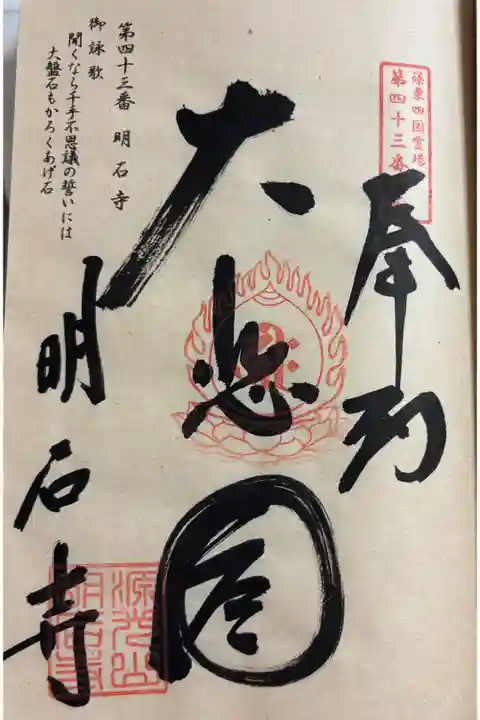 篠栗四国霊場
第四十三番
奉納
大悲閣
第四十三番 明石寺
御詠歌
聞くなら千手不思議の誓いには
大盤石もかろくあげ石
明石寺
源光山
明石寺